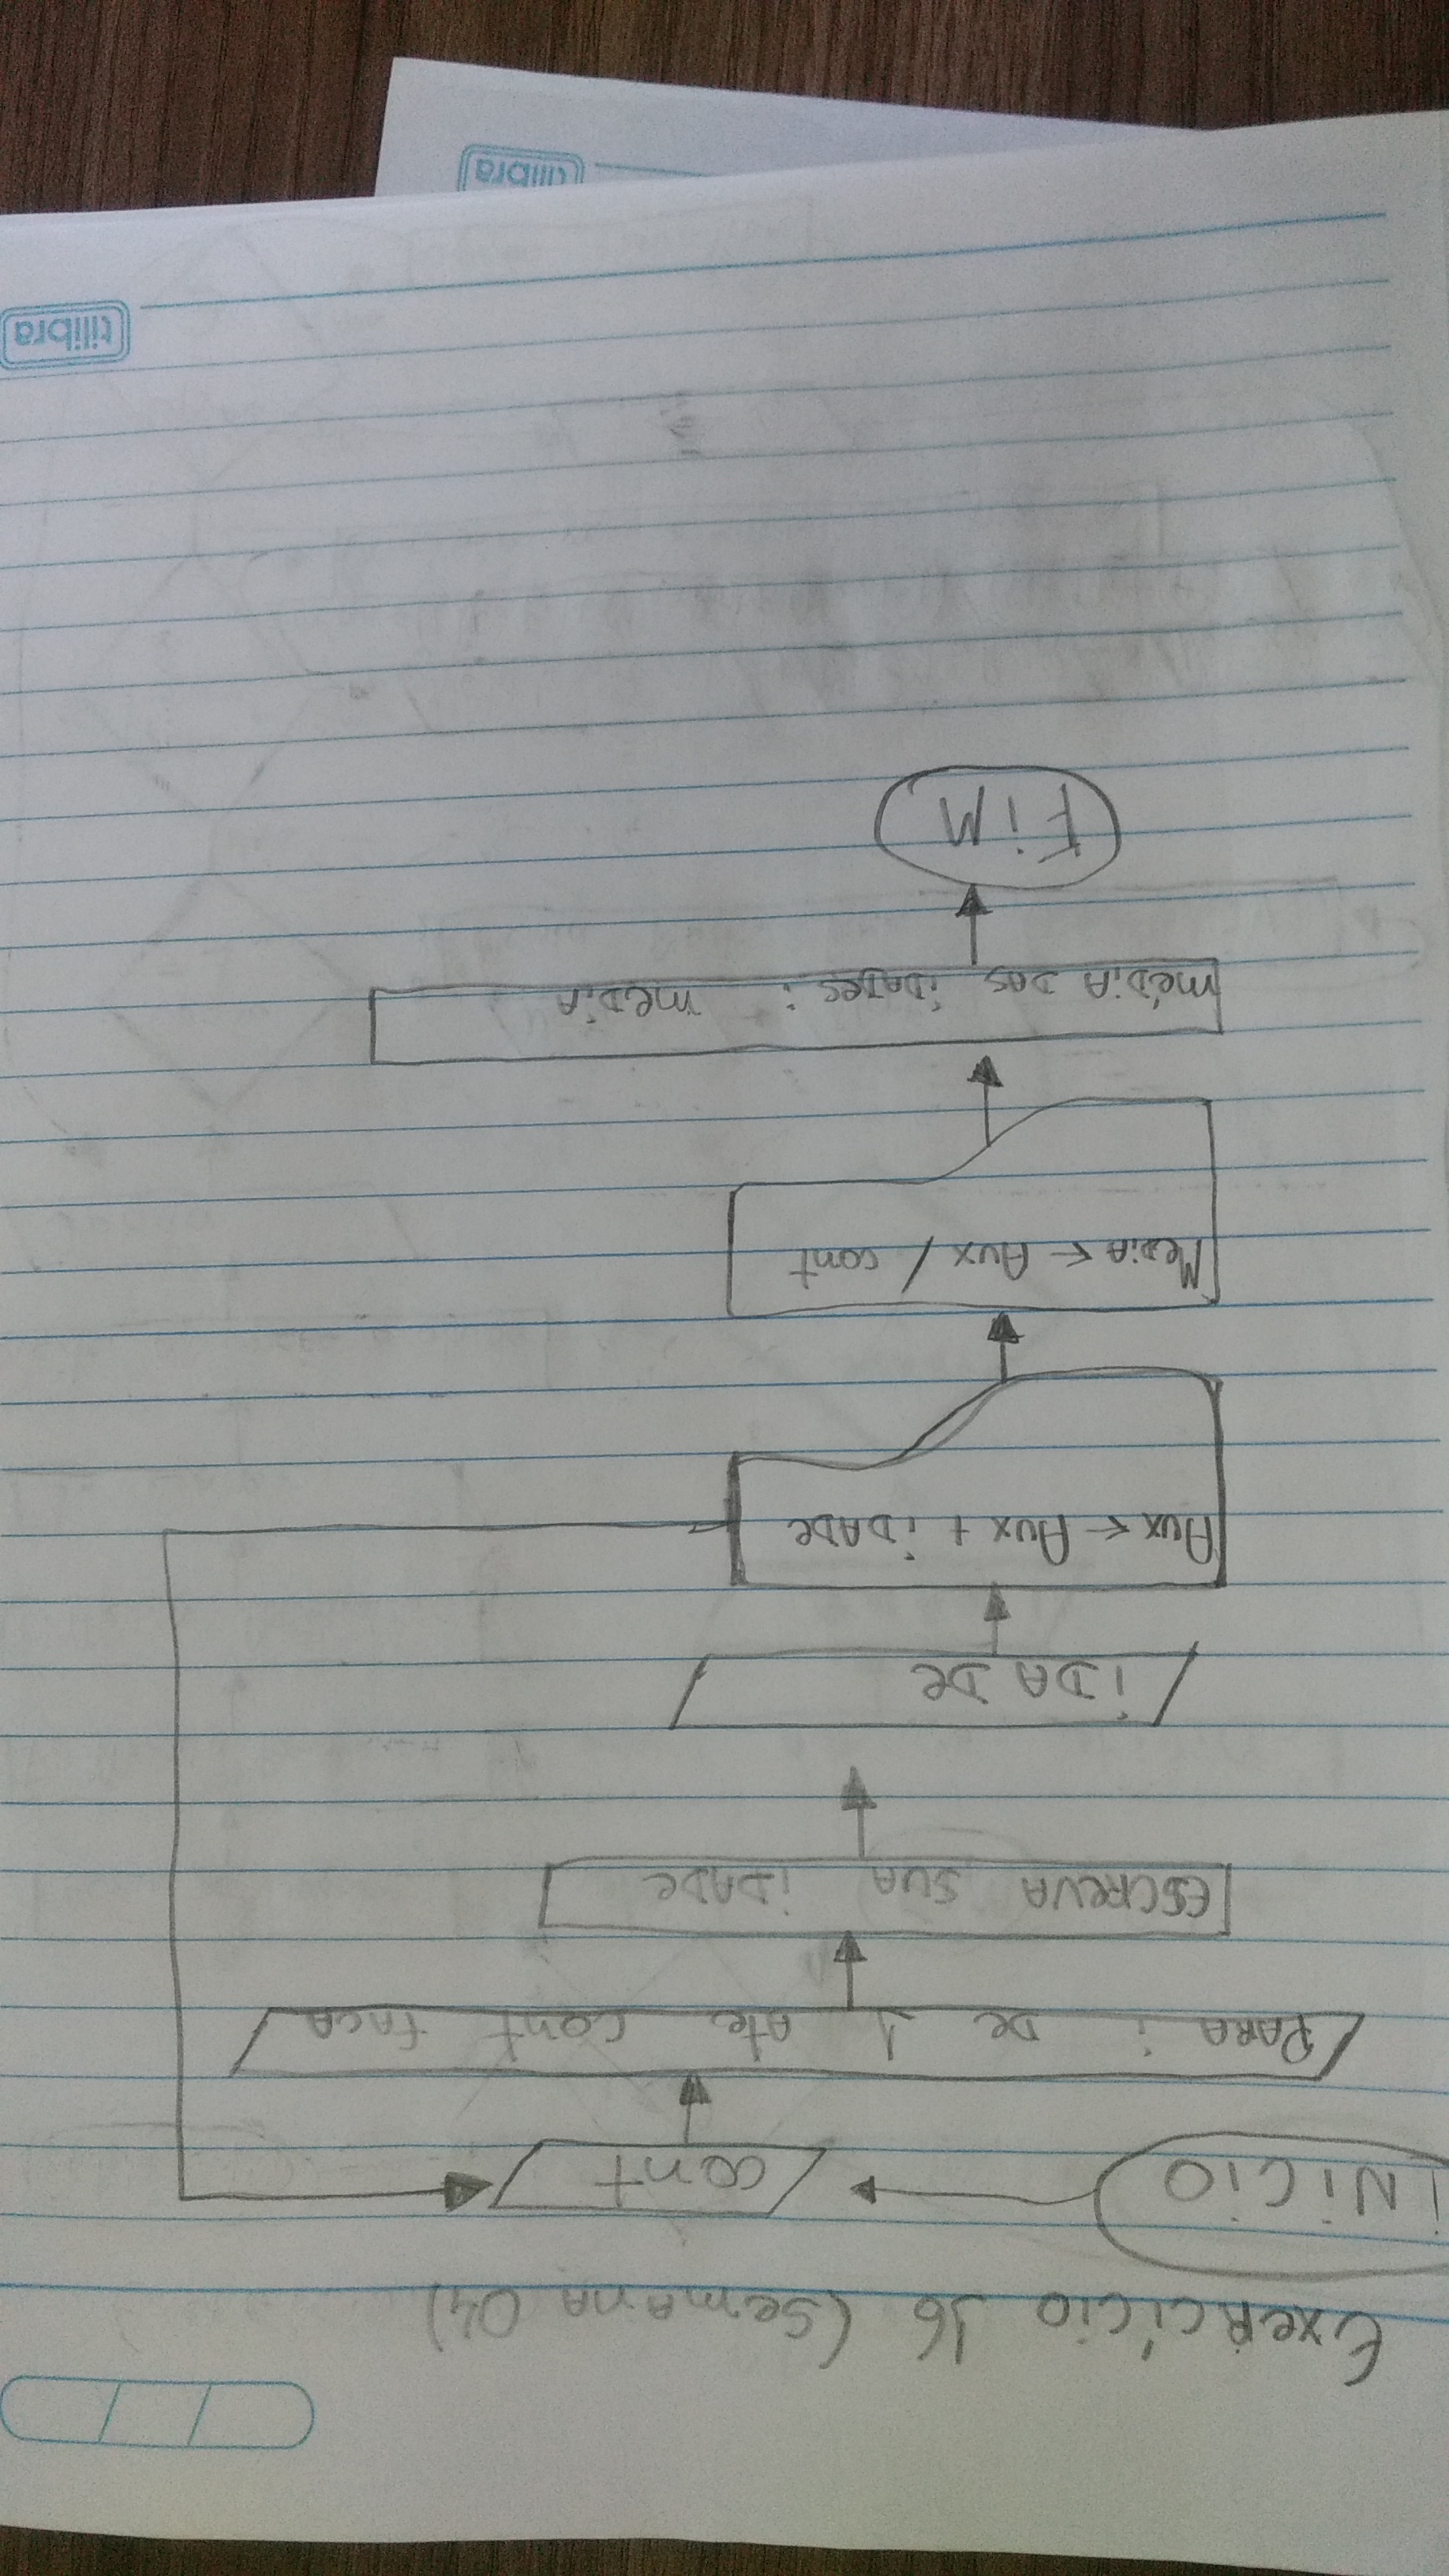 Exercício 16 (Semana 04)
INICIO
cont
PARA i DE 1 Ate cont FACA
ESCREVA SUA IDADE
IDADE
Aux ← Aux + IDADE
MEDIA ← Aux / cont
MÉDIA DAS IDADES: MEDIA
FIM
tilibra
tilibra